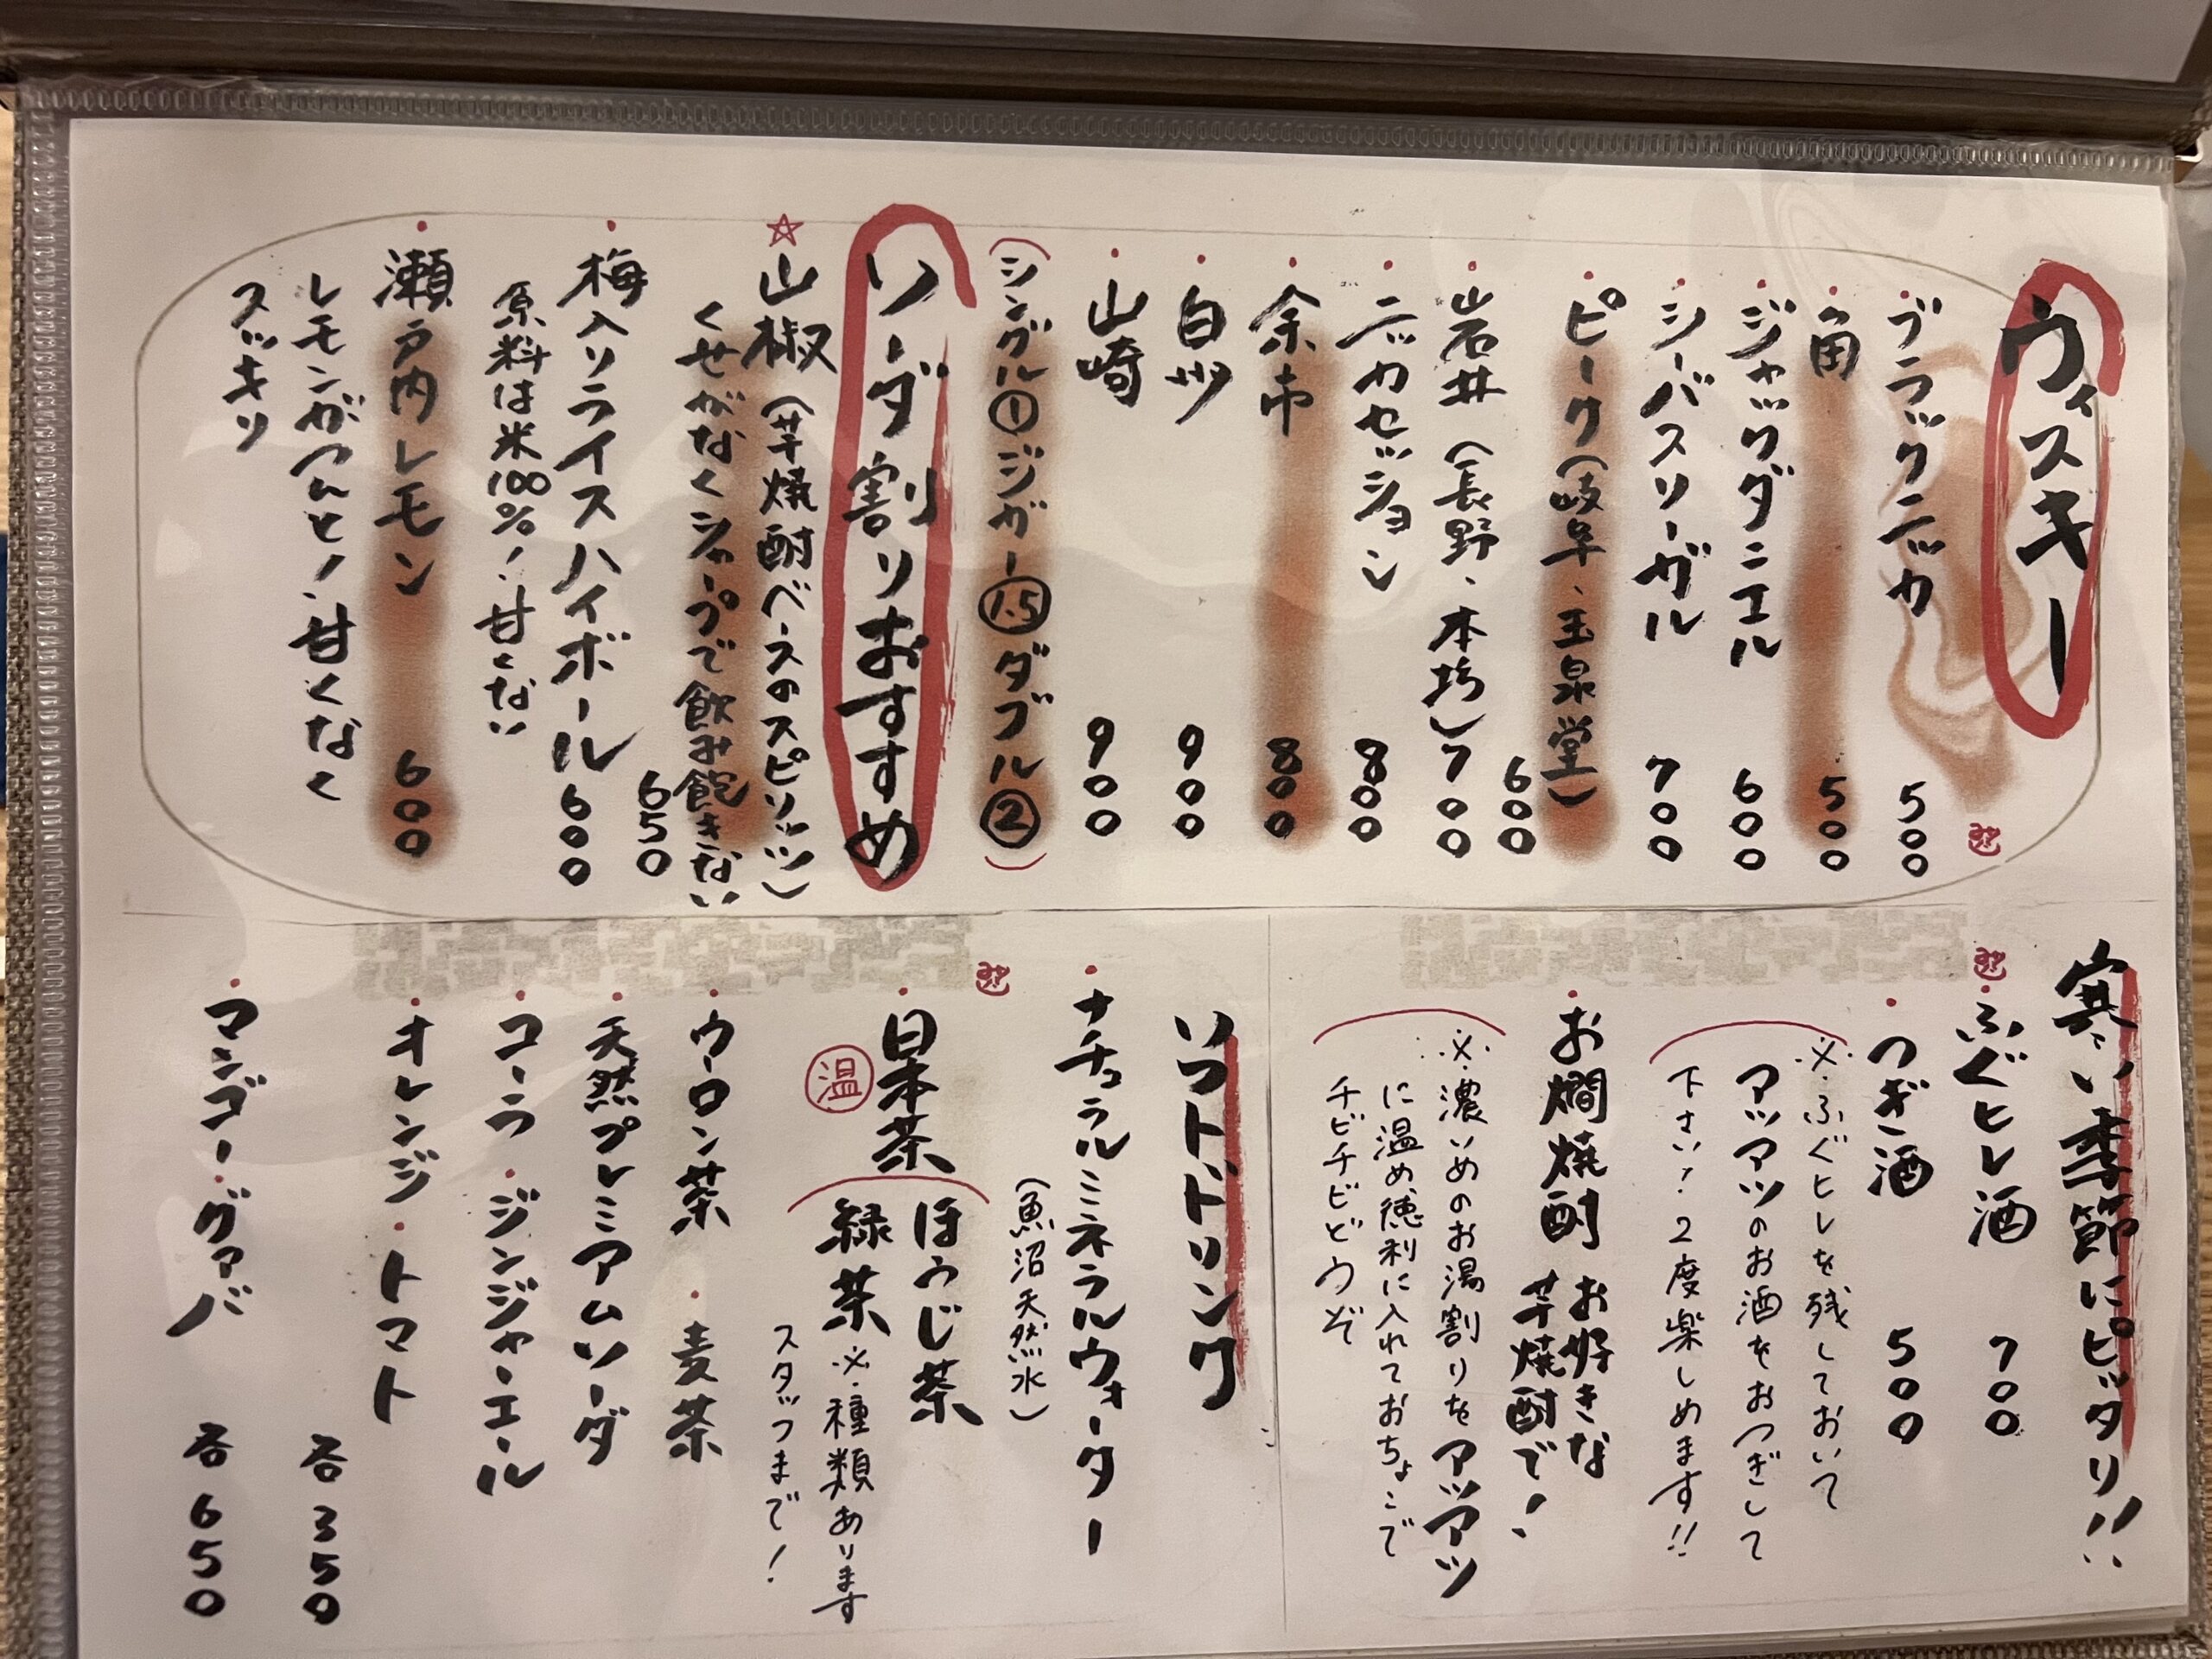 ウィスキー
ブラックニッカ 500
角 500
ジャックダニエル 600
シーバスリーガル 700
ピーク(岐阜、玉泉堂) 600
岩井(長野、本坊) 700
ニッカセッション 800
余市 800
白州 900
山崎 900
(シングル① ジガー1.5 ダブル②)
ソーダ割りおすすめ
☆山椒(芋焼酎ベースのスピリッツ)
くせがなくシャープで飲み飽きない 650
梅入りライスハイボール 600
原料は米100%!甘くない
瀬戸内レモン 600
レモンがツンと!甘くなく
スッキリ
寒い季節にピッタリ!!
ふぐヒレ酒 700
つぎ酒 500
※ふぐヒレを残しておいて
アッツアツのお酒をおつぎして
下さい!2度楽しめます!!
お燗焼酎 お好きな
芋焼酎で!
※濃いめのお湯割りをアッツアツ
に温め徳利に入れておちょこで
チビチビどうぞ
ソフトドリンク
ナチュラルミネラルウォーター
(魚沼天然水)
日本茶 ほうじ茶
温 緑茶 ※種類あります
スタッフまで!
ウーロン茶・麦茶
天然プレミアムソーダ
コーラ・ジンジャーエール
オレンジ・トマト
各350
マンゴー・グァバ 各650